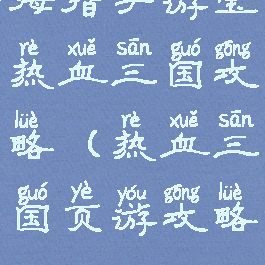 rè xuě sān guó gōng
热血三国攻
lüè rè xuě sān
略（热血三
guó yè yóu gōng lüè
国页游攻略